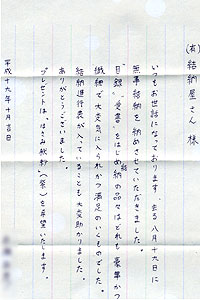 (有)結納屋さん 様
いつもお世話になっております。去る八月十九日に
無事結納を納めさせていただきました。
目録、受書をはじめ結納の品々はどれも豪華かつ
繊細で大変気に入られかつ満足のいくものでした。
結納進行表が入っていることも大変助かりました。
ありがとうございました。
プレゼントは、はさみ飲軒(茶)を希望いたします。
平成十九年十月吉日